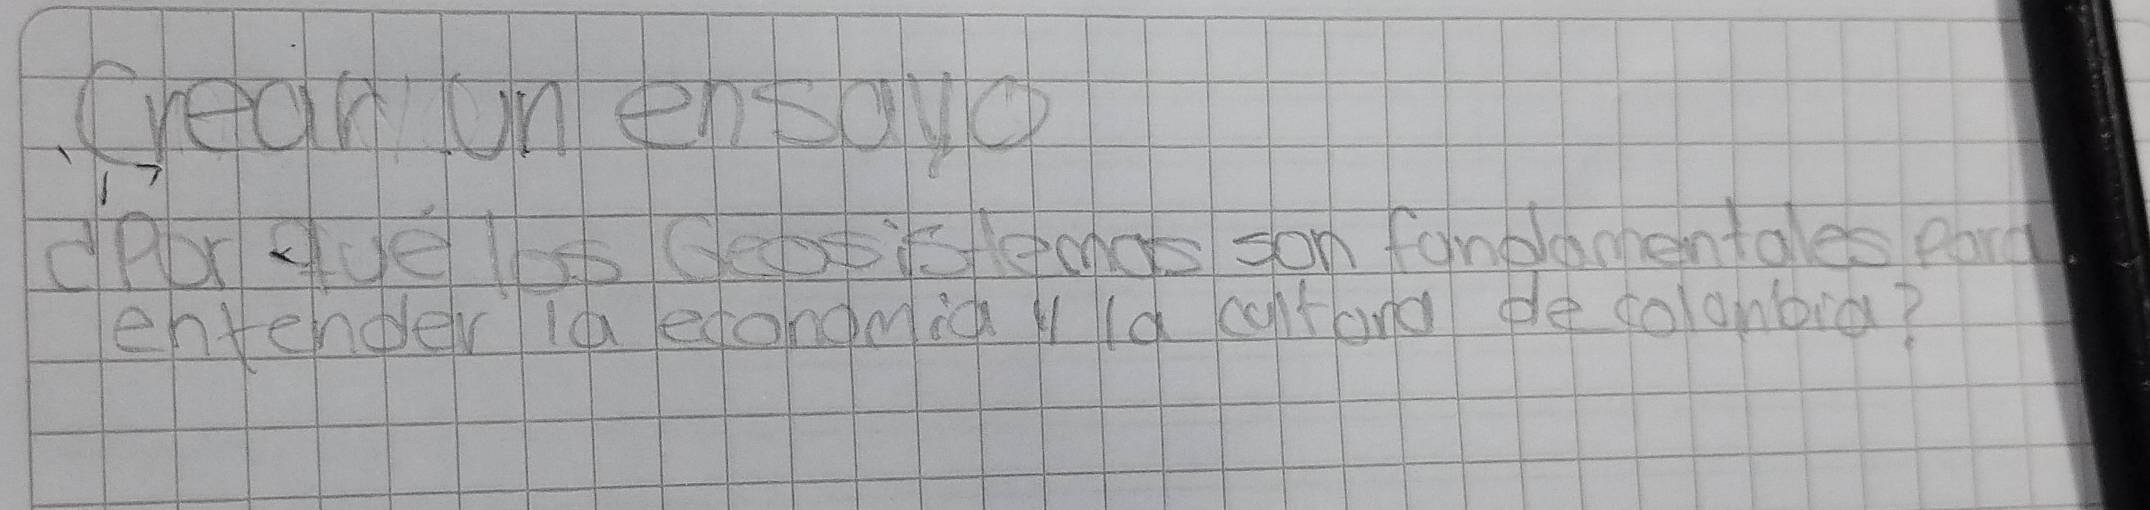 Crear un ensayo
¿Por qué los Geosistemas son fundamentales para
entender la economia y la cultura de colombia?